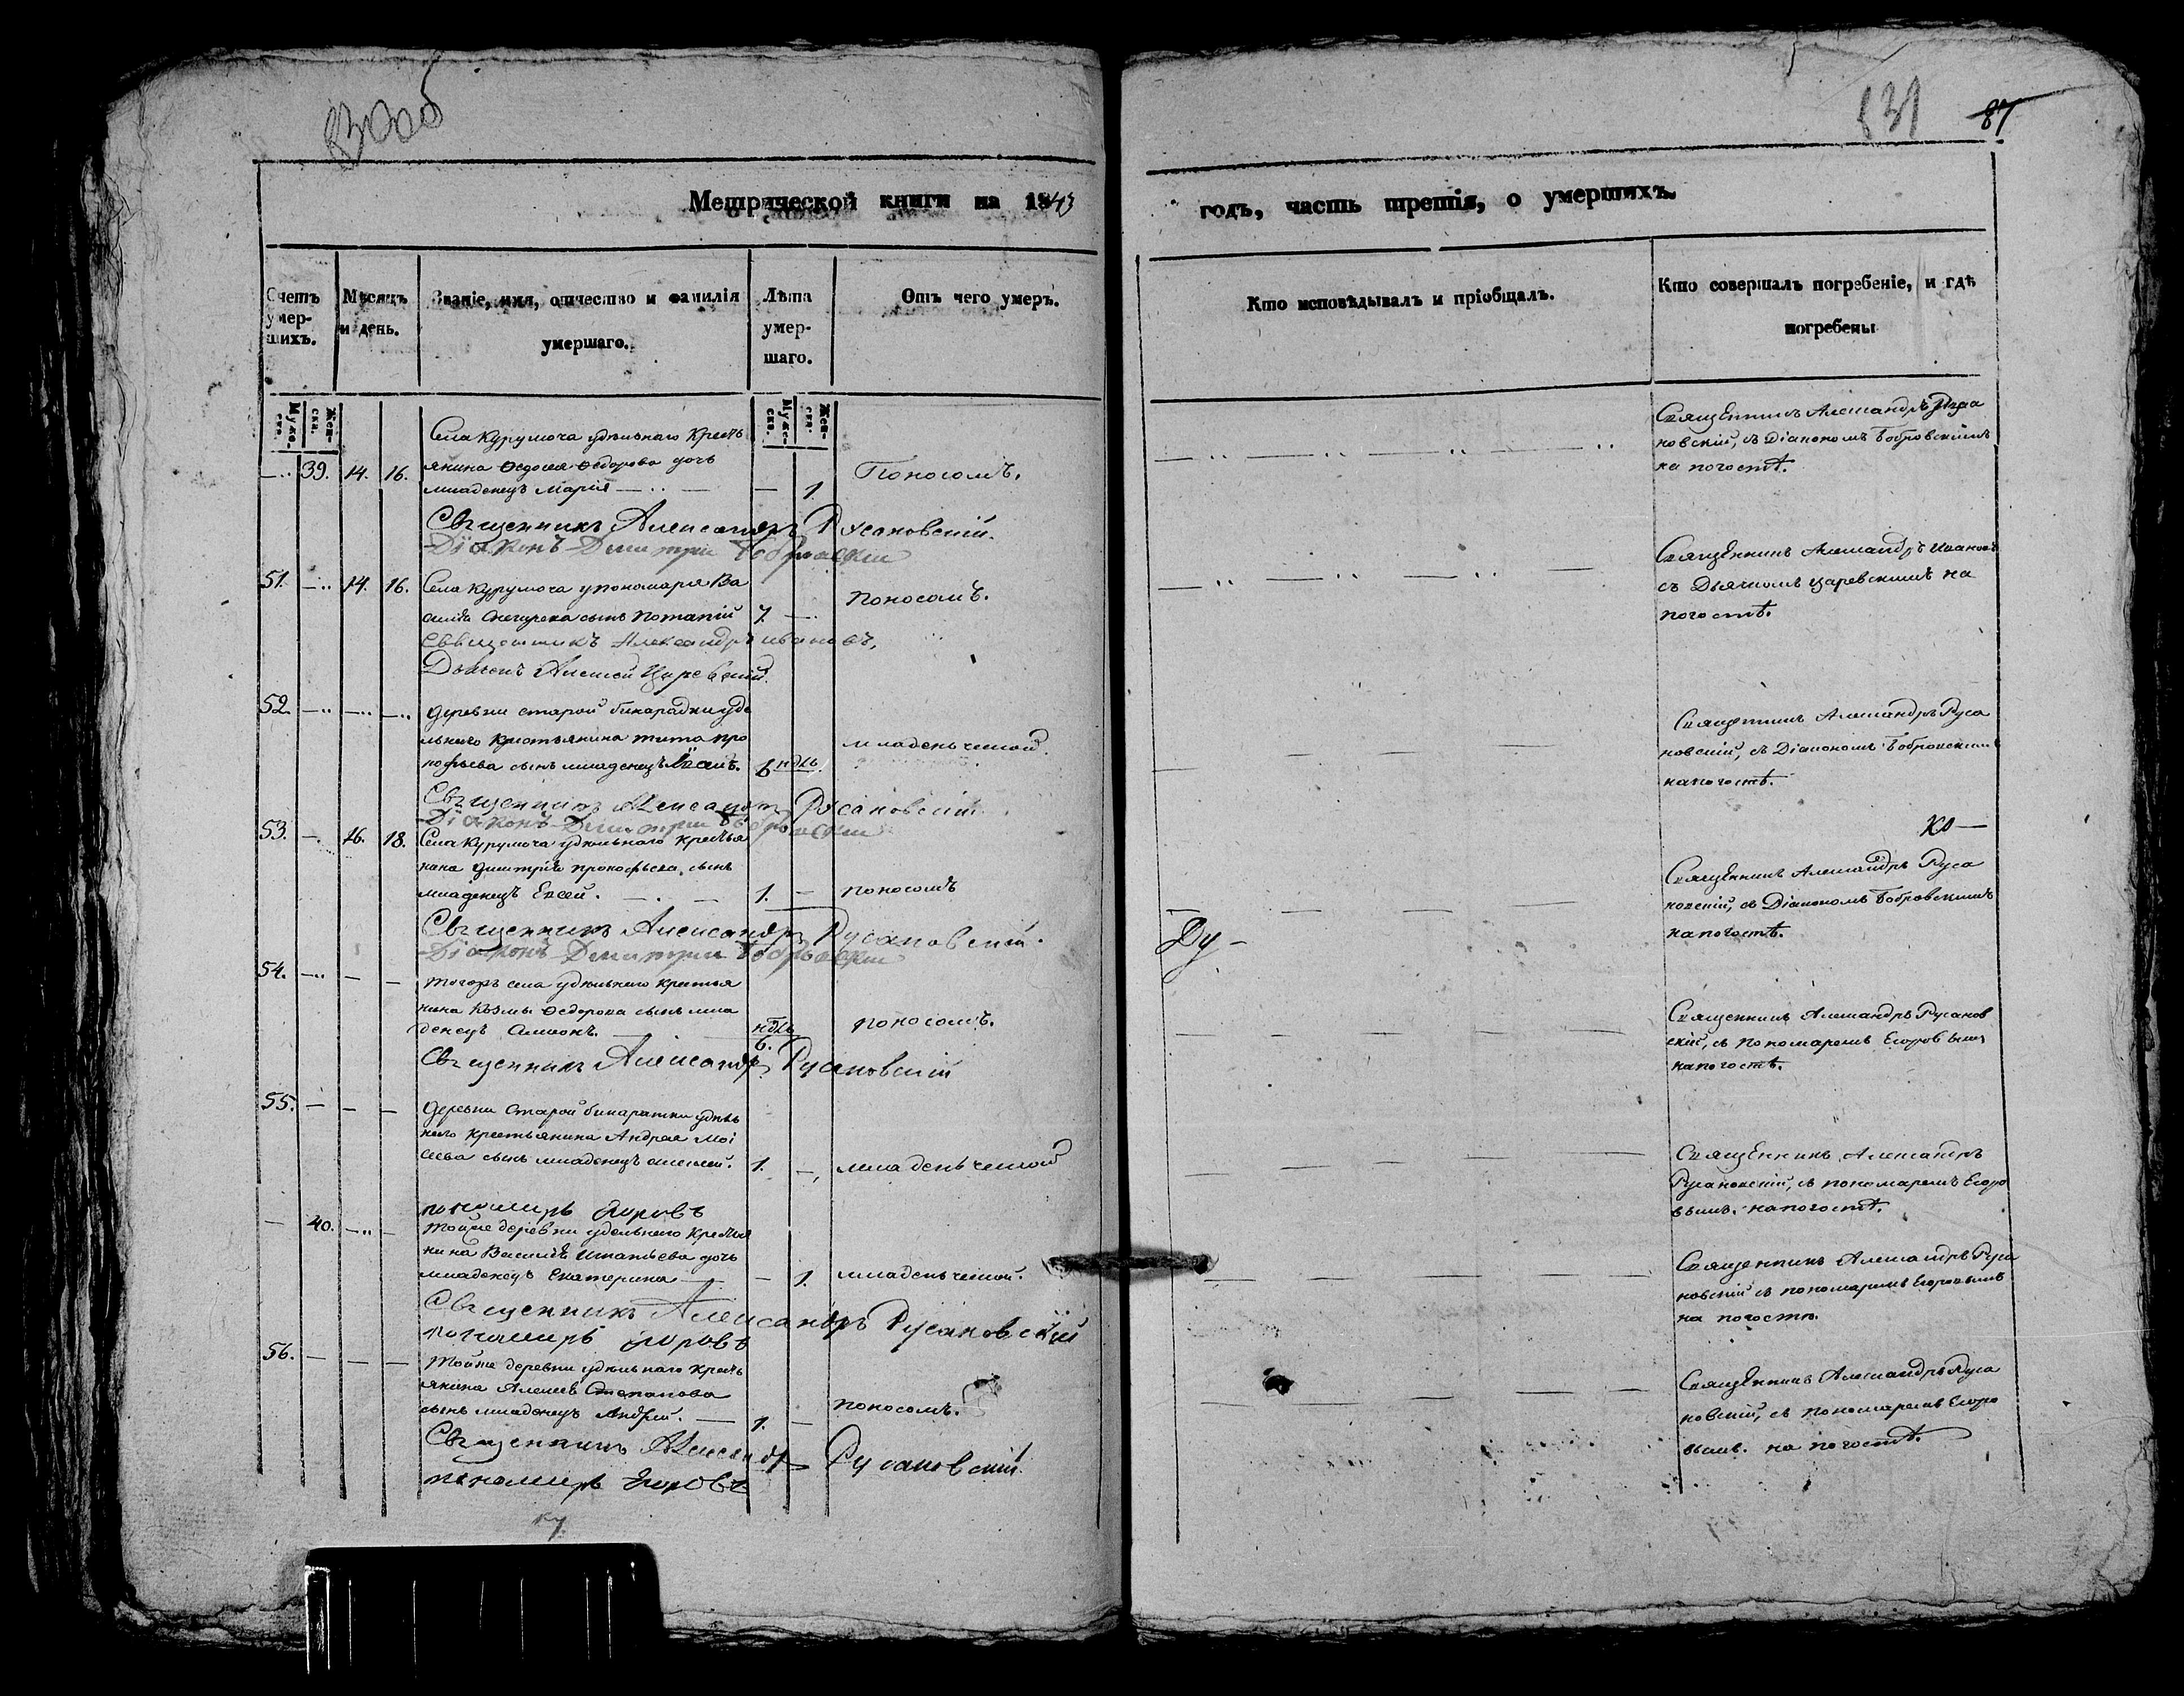 831 87
Метрической книги на 1843
годъ, часть третія, о умершихъ.
Счетъ умер-шихъ.
Мѣсяцъ и день.
Званіе, имя, отчество и фамилія умершаго.
Лѣта умер-шаго.
Отъ чего умеръ.
Кто исповѣдывалъ и пріобщалъ.
Кто совершалъ погребеніе, и гдѣ погребены
Муже-ска. Жен-ска.
Муже-ска. Жен-ска.
Села Курумоча удѣльнаго Кресть
—.. 39. 14. 16. янина Ѳедора дочь
младенецъ Марія — .. — — 1. Поносомъ.
Священникъ Александръ Руса
новскій, съ Діакономъ Бобровскимъ
на погостѣ.
Священникъ Александръ Русановскій.
Діаконъ Димитрий Бобровский
51. —.. 14. 16. Села Курумоча пономаря Ва
силія сынъ Потапій 7. —.. Поносомъ.
Священникъ Александръ Ивановъ
съ Дьячкомъ Царевскимъ на
погостѣ.
Священникъ Александръ Ивановъ,
Дьячекъ Алексей Царевский.
52. —.. —.. —.. Деревни старой бинарадки удѣ
льнаго крестьянина Тита Про
кофьева сынъ младенецъ 6 ндль. младенческой.
Священникъ Александръ Руса
новскій, съ Діакономъ Бобровскимъ
на погостѣ.
Священникъ Александръ Русановскій.
Діаконъ Димитрий Бобровский
53. —. 16. 18. Села Курумоча удѣльнаго крестья
нина Димитрія Прокофьева, сынъ
младенецъ Евсей. — . — 1. — поносомъ
Ко—
Священникъ Александръ Руса
новскій, съ Діакономъ Бобровскимъ
на погостѣ.
Ду —
Священникъ Александръ Русановскій.
Діаконъ Димитрий Бобровский
54. —.. — — Тогожъ села удѣльнаго крестья
нина Козмы Ѳедорова сынъ мла
денецъ Симеонъ. — ндль 6. поносомъ.
Священникъ Александръ Русанов
скій, съ пономаремъ Егоровымъ
на погостѣ.
Священникъ Александръ Русановскій
55. — — — Деревни Старой бинарадки удѣль
наго крестьянина Андрея Мої
сеева сынъ младенецъ Алексей. 1. — младенческой
Священникъ Александръ
Русановскій, съ пономаремъ Егоро
вымъ. на погостѣ.
пономарь Егоровъ
— 40. —.. — Тойже деревни удельнаго крестья
нина Василія Игнатьева дочь
младенецъ Екатерина — — 1. младенческой.
Священникъ Александръ Руса
новскій съ пономаремъ Егоровымъ
на погостѣ.
Священникъ Александръ Русановскій
пономарь Егоровъ
56. — — — Тойже деревни удѣльнаго кресть
янина Алексея Степанова
сынъ младенецъ Андрей. — 1. — поносомъ.
Священникъ Александръ Руса
новскій, съ пономаремъ Егоро
вымъ. на погостѣ.
Священникъ Александръ Русановскій.
пономарь Егоровъ
Ку